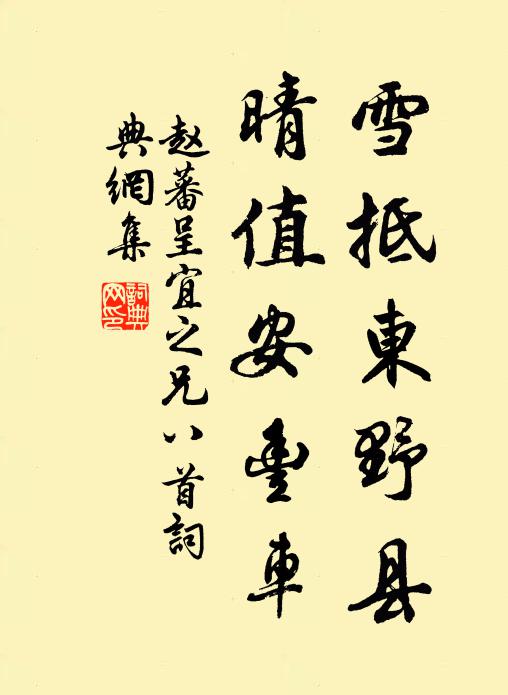 雪抵東野县
晴值安豊車
赵蕃呈宜之兄八首詞
典網集
詞典
网印